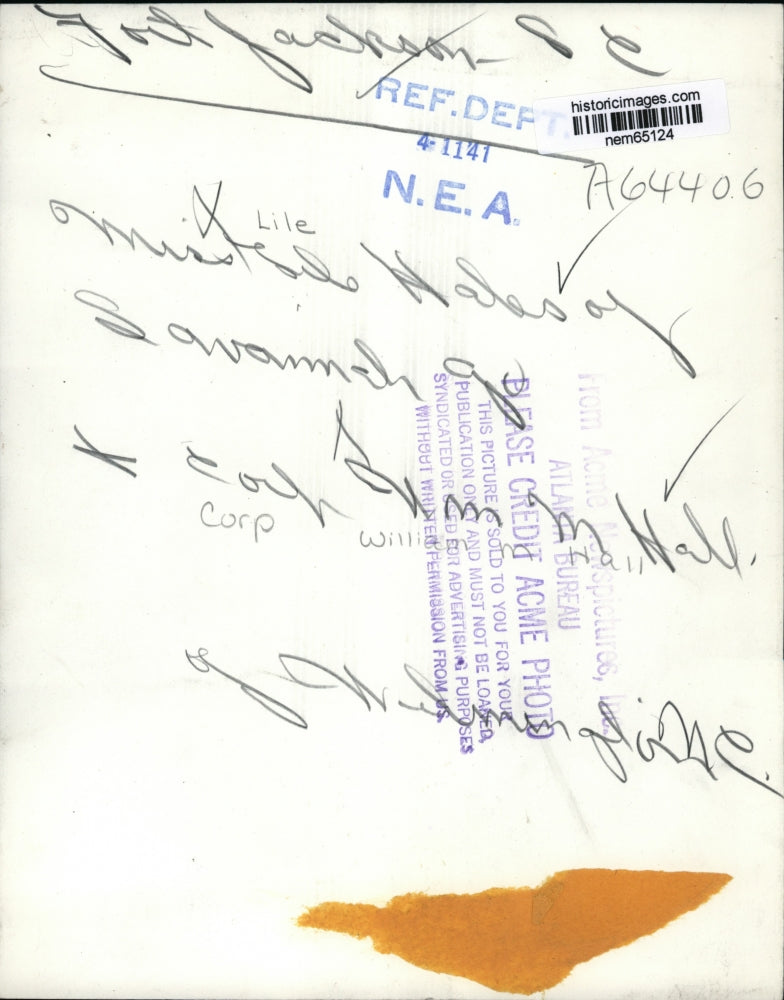 Fort Jackson S C
REF. DEPT.
historicimages.com
nem65124
4-1141
N.E.A.
A64406
Lile
Miss Lile Hales of
Savannah Ga
X Corp Wm M Hall.
Corp William Hall
of Wilmington N C.
From Acme Newspictures, Inc.
ATLANTA BUREAU
PLEASE CREDIT ACME PHOTO
THIS PICTURE IS SOLD TO YOU FOR YOUR
PUBLICATION ONLY AND MUST NOT BE LOANED,
SYNDICATED OR USED FOR ADVERTISING PURPOSES
WITHOUT WRITTEN PERMISSION FROM US.